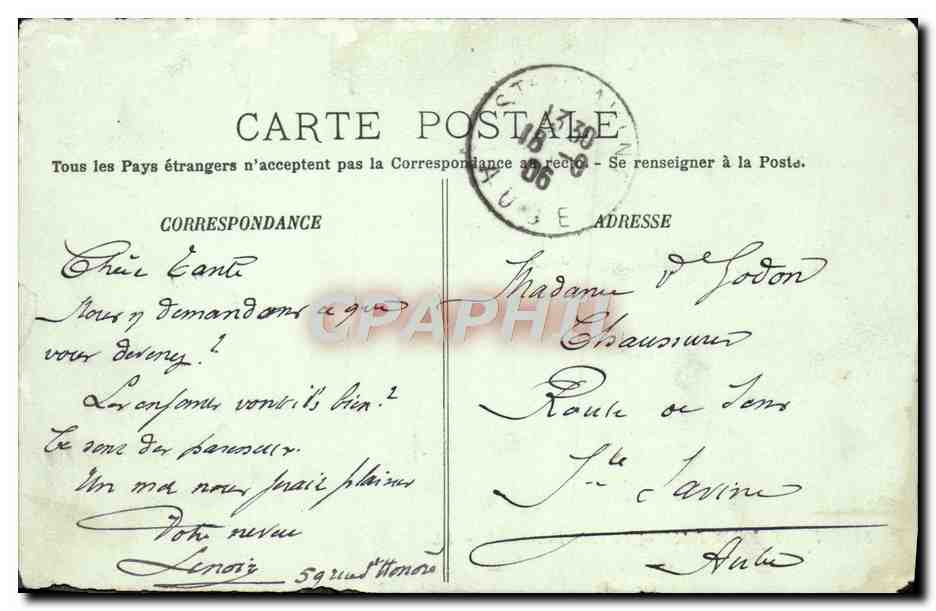 CARTE POSTALE
Tous les Pays étrangers n'acceptent pas la Correspondance au recto - Se renseigner à la Poste.
13 30
15 -9
06
AUBE
CORRESPONDANCE
Chère Tante
Nous demandons ce que
vous devenez ?
Les enfants vont ils bien ?
Ce sont des paresseux.
Un mot nous ferait plaisir
Votre neveu
Lenoir 59 rue St Honoré
ADRESSE
Madame Vve Godon
Chaussures
Route de Sens
Ste Savine
Aube
CPAPHIL